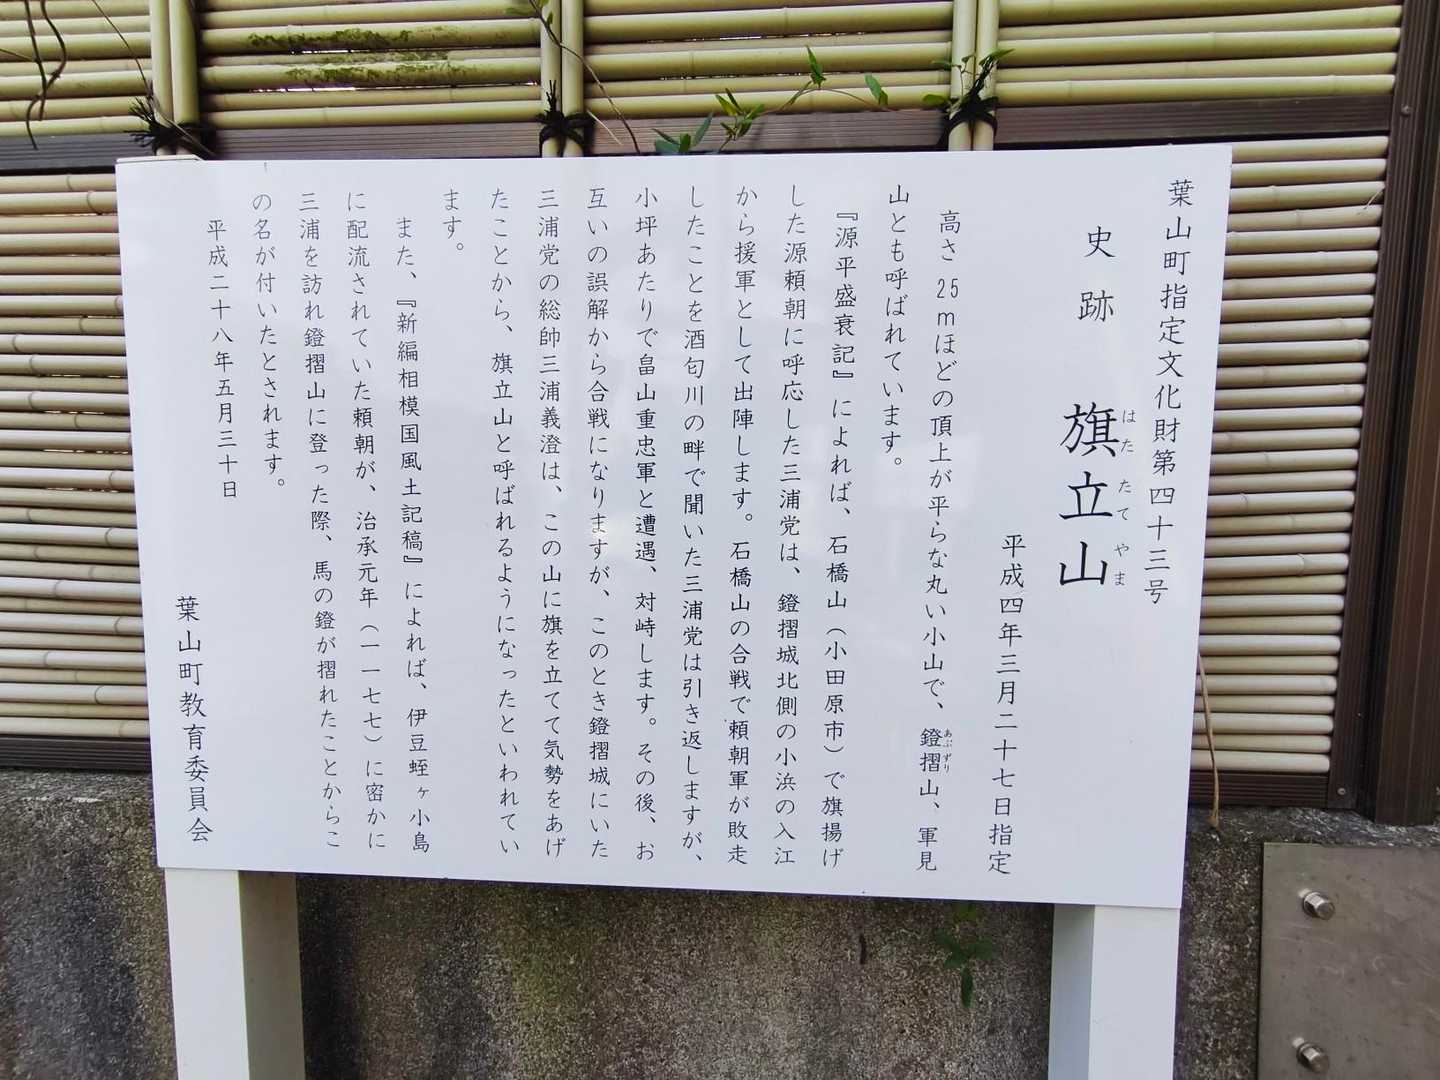 葉山町指定文化財第四十三号
史跡 旗立山
はた たて やま
平成四年三月二十七日指定
高さ25mほどの頂上が平らな丸い小山で、鐙摺山、軍見
あぶずり
山とも呼ばれています。
『源平盛衰記』によれば、石橋山（小田原市）で旗揚げ
した源頼朝に呼応した三浦党は、鐙摺城北側の小浜の入江
から援軍として出陣します。石橋山の合戦で頼朝軍が敗走
したことを酒匂川の畔で聞いた三浦党は引き返しますが、
小坪あたりで畠山重忠軍と遭遇、対峙します。その後、お
互いの誤解から合戦になりますが、このとき鐙摺城にいた
三浦党の総帥三浦義澄は、この山に旗を立てて気勢をあげ
たことから、旗立山と呼ばれるようになったといわれてい
ます。
また、『新編相模国風土記稿』によれば、伊豆蛭ヶ小島
に配流されていた頼朝が、治承元年（一一七七）に密かに
三浦を訪れ鐙摺山に登った際、馬の鐙が摺れたことからこ
の名が付いたとされます。
平成二十八年五月三十日
葉山町教育委員会